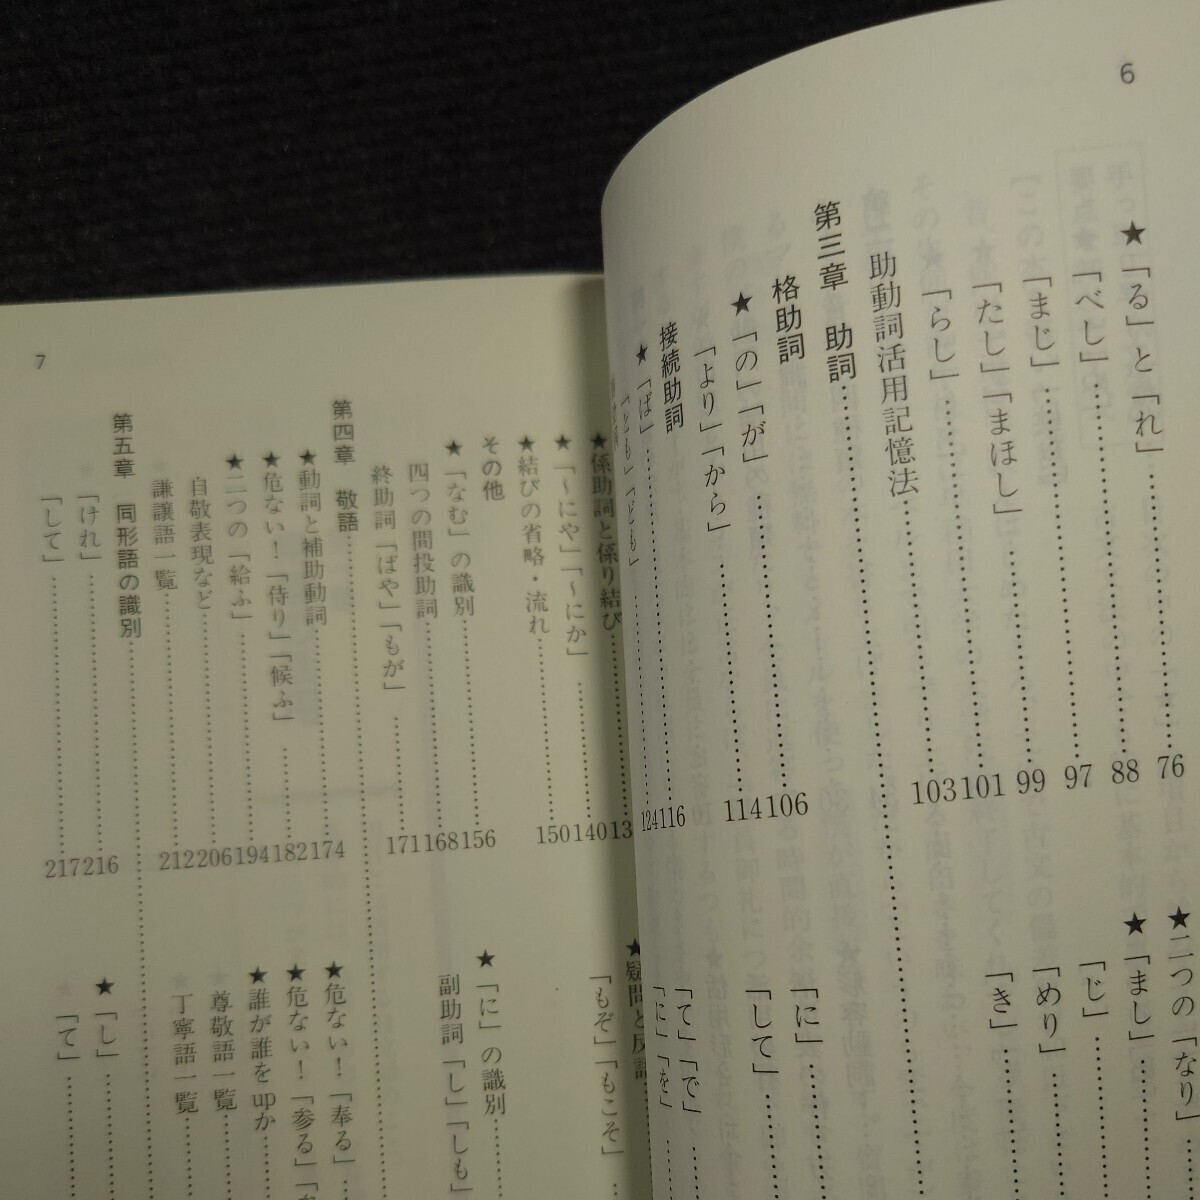 6
★「る」と「れ」……76
「べし」……88
「まじ」……97
「たし」「まほし」……99
「らし」……101
助動詞活用記憶法……103
第三章　助詞
格助詞……106
★「の」「が」……114
「より」「から」
接続助詞……116
★「ば」……124
「とも」「ども」
★二つの「なり」
★「まし」
「じ」
「めり」
「き」
「に」
「して」
「て」「で」
「に」「を」
7
★係助詞と係り結び
★「〜にや」「〜にか」……140
★結びの省略・流れ……150
その他
★「なむ」の識別……156
四つの間投助詞……168
終助詞「ばや」「もが」……171
第四章　敬語
★動詞と補助動詞……174
★危ない！「侍り」「候ふ」……182
★二つの「給ふ」……194
自敬表現など……206
謙譲語一覧……212
第五章　同形語の識別
「けれ」……216
「して」……217
★疑問と反語
「もぞ」「もこそ」
★「に」の識別
副助詞「し」「しも」
★危ない！「奉る」
★危ない！「参る」
★誰が誰をupか
尊敬語一覧
丁寧語一覧
★「し」
「て」